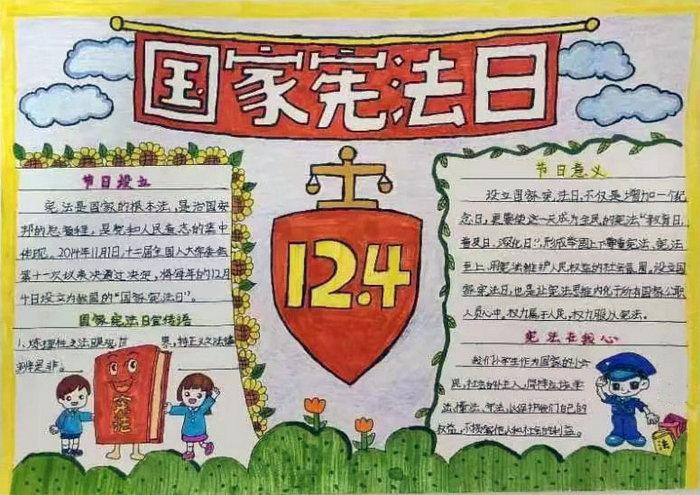 国家宪法日
节日设立
宪法是国家的根本法,是治国安
邦的总章程,是党和人民意志的集中
体现。2014年11月1日,十二届全国人大常委会
第十一次以表决通过决定,将每年的12月
4日设立为我国的“国家宪法日”。
国家宪法日宣传语
12.4
节日意义
设立国家宪法日,不仅是增加一个纪
念日,更要使这一天成为全民的宪法“教育日、
普及日、深化日”,形成举国上下尊重宪法、宪法
至上、用宪法维护人民权益的社会氛围。设立国
家宪法日,也是让宪法思维内化于所有国家公职
人员心中。权力属于人民,权力服从宪法。
宪法在我心
我们小学生作为国家的小公
民,社会的小主人,同样应该学
法、懂法、守法,以保护我们自己的
权益,不损害他人和社会的利益。
法